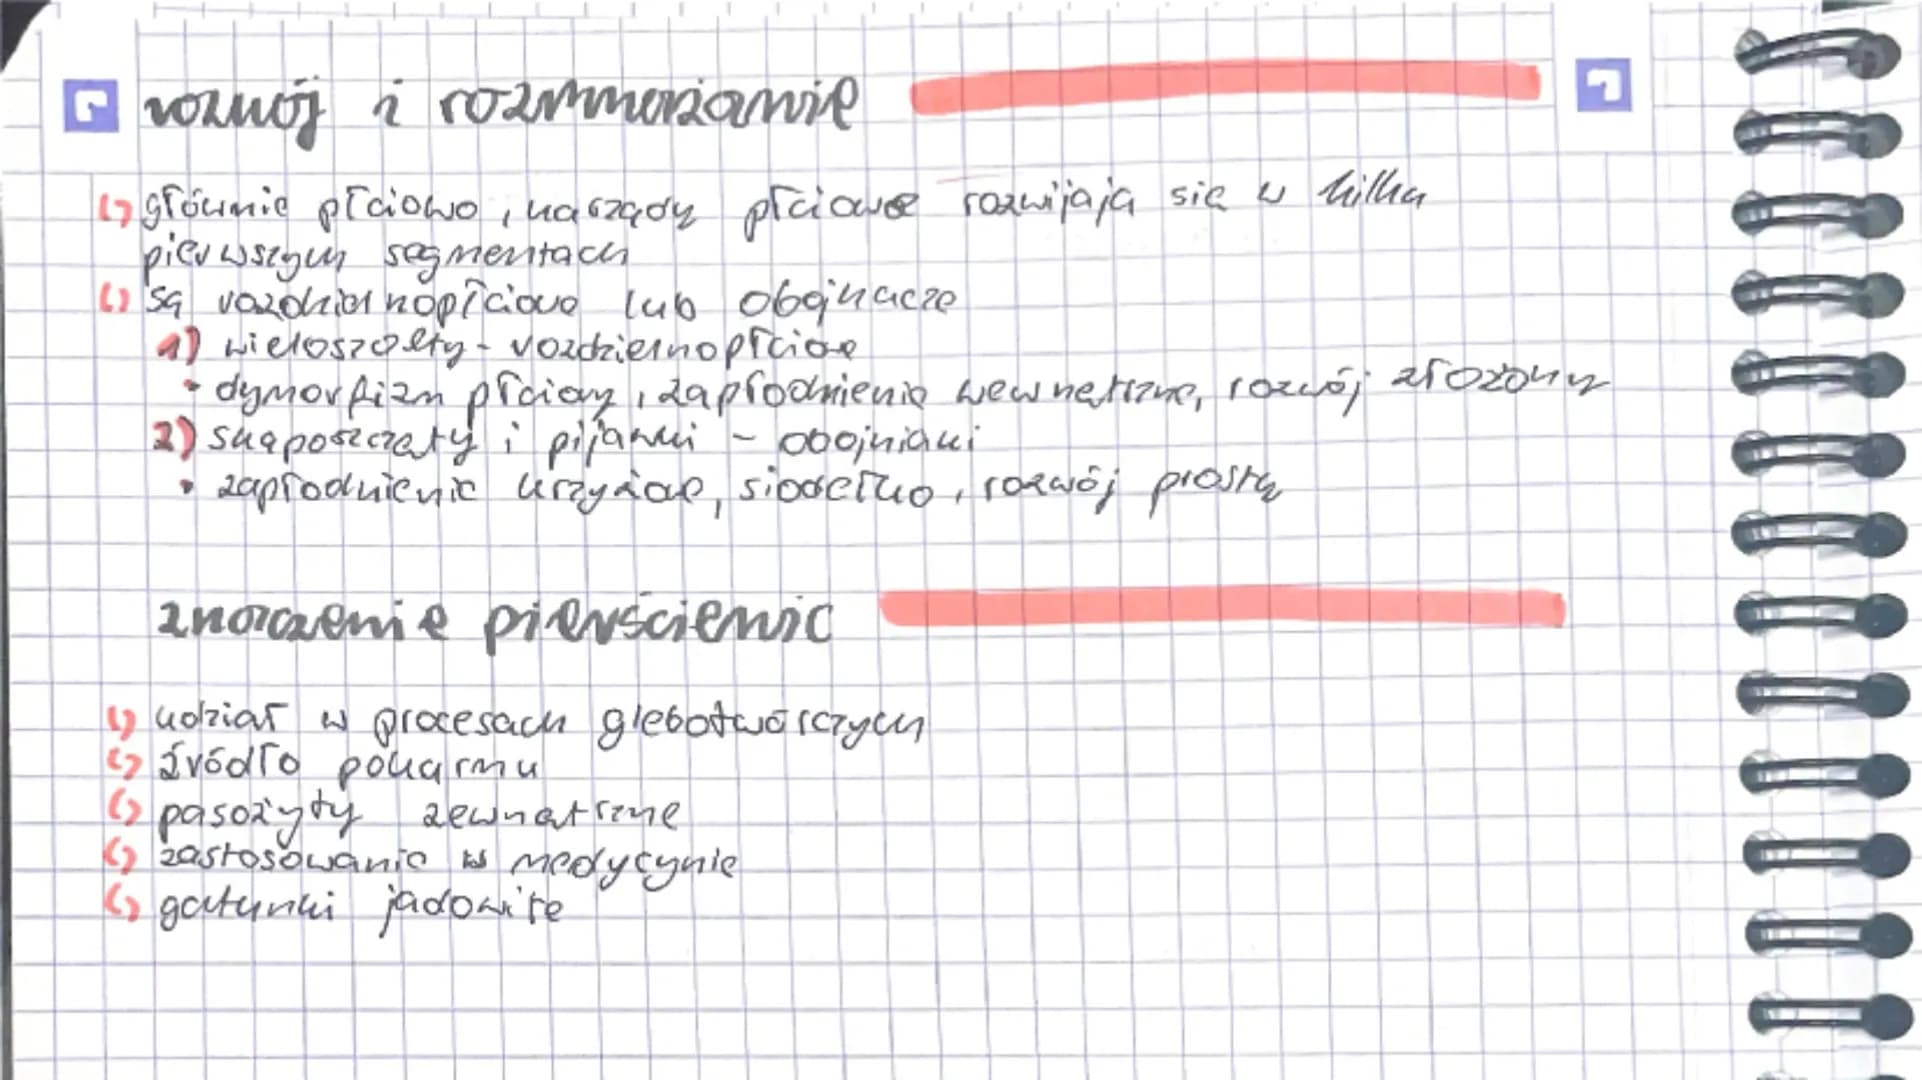 rozwój i rozmnażanie
głównie płciowo, narządy płciowe rozwijają się w kilku
pierwszych segmentach
są rozdzielnopłciowe lub obojnacze
1) wieloszczety - rozdzielnopłciowe
• dymorfizm płciowy, zapłodnienie wewnętrzne, rozwój złożony
2) skąposzczety i pijawki - obojniaki
• zapłodnienie krzyżowe, siodełko, rozwój prosty
znaczenie pierścienic
udział w procesach glebotwórczych
źródło pokarmu
pasożyty zewnętrzne
zastosowanie w medycynie
gatunki jadowite